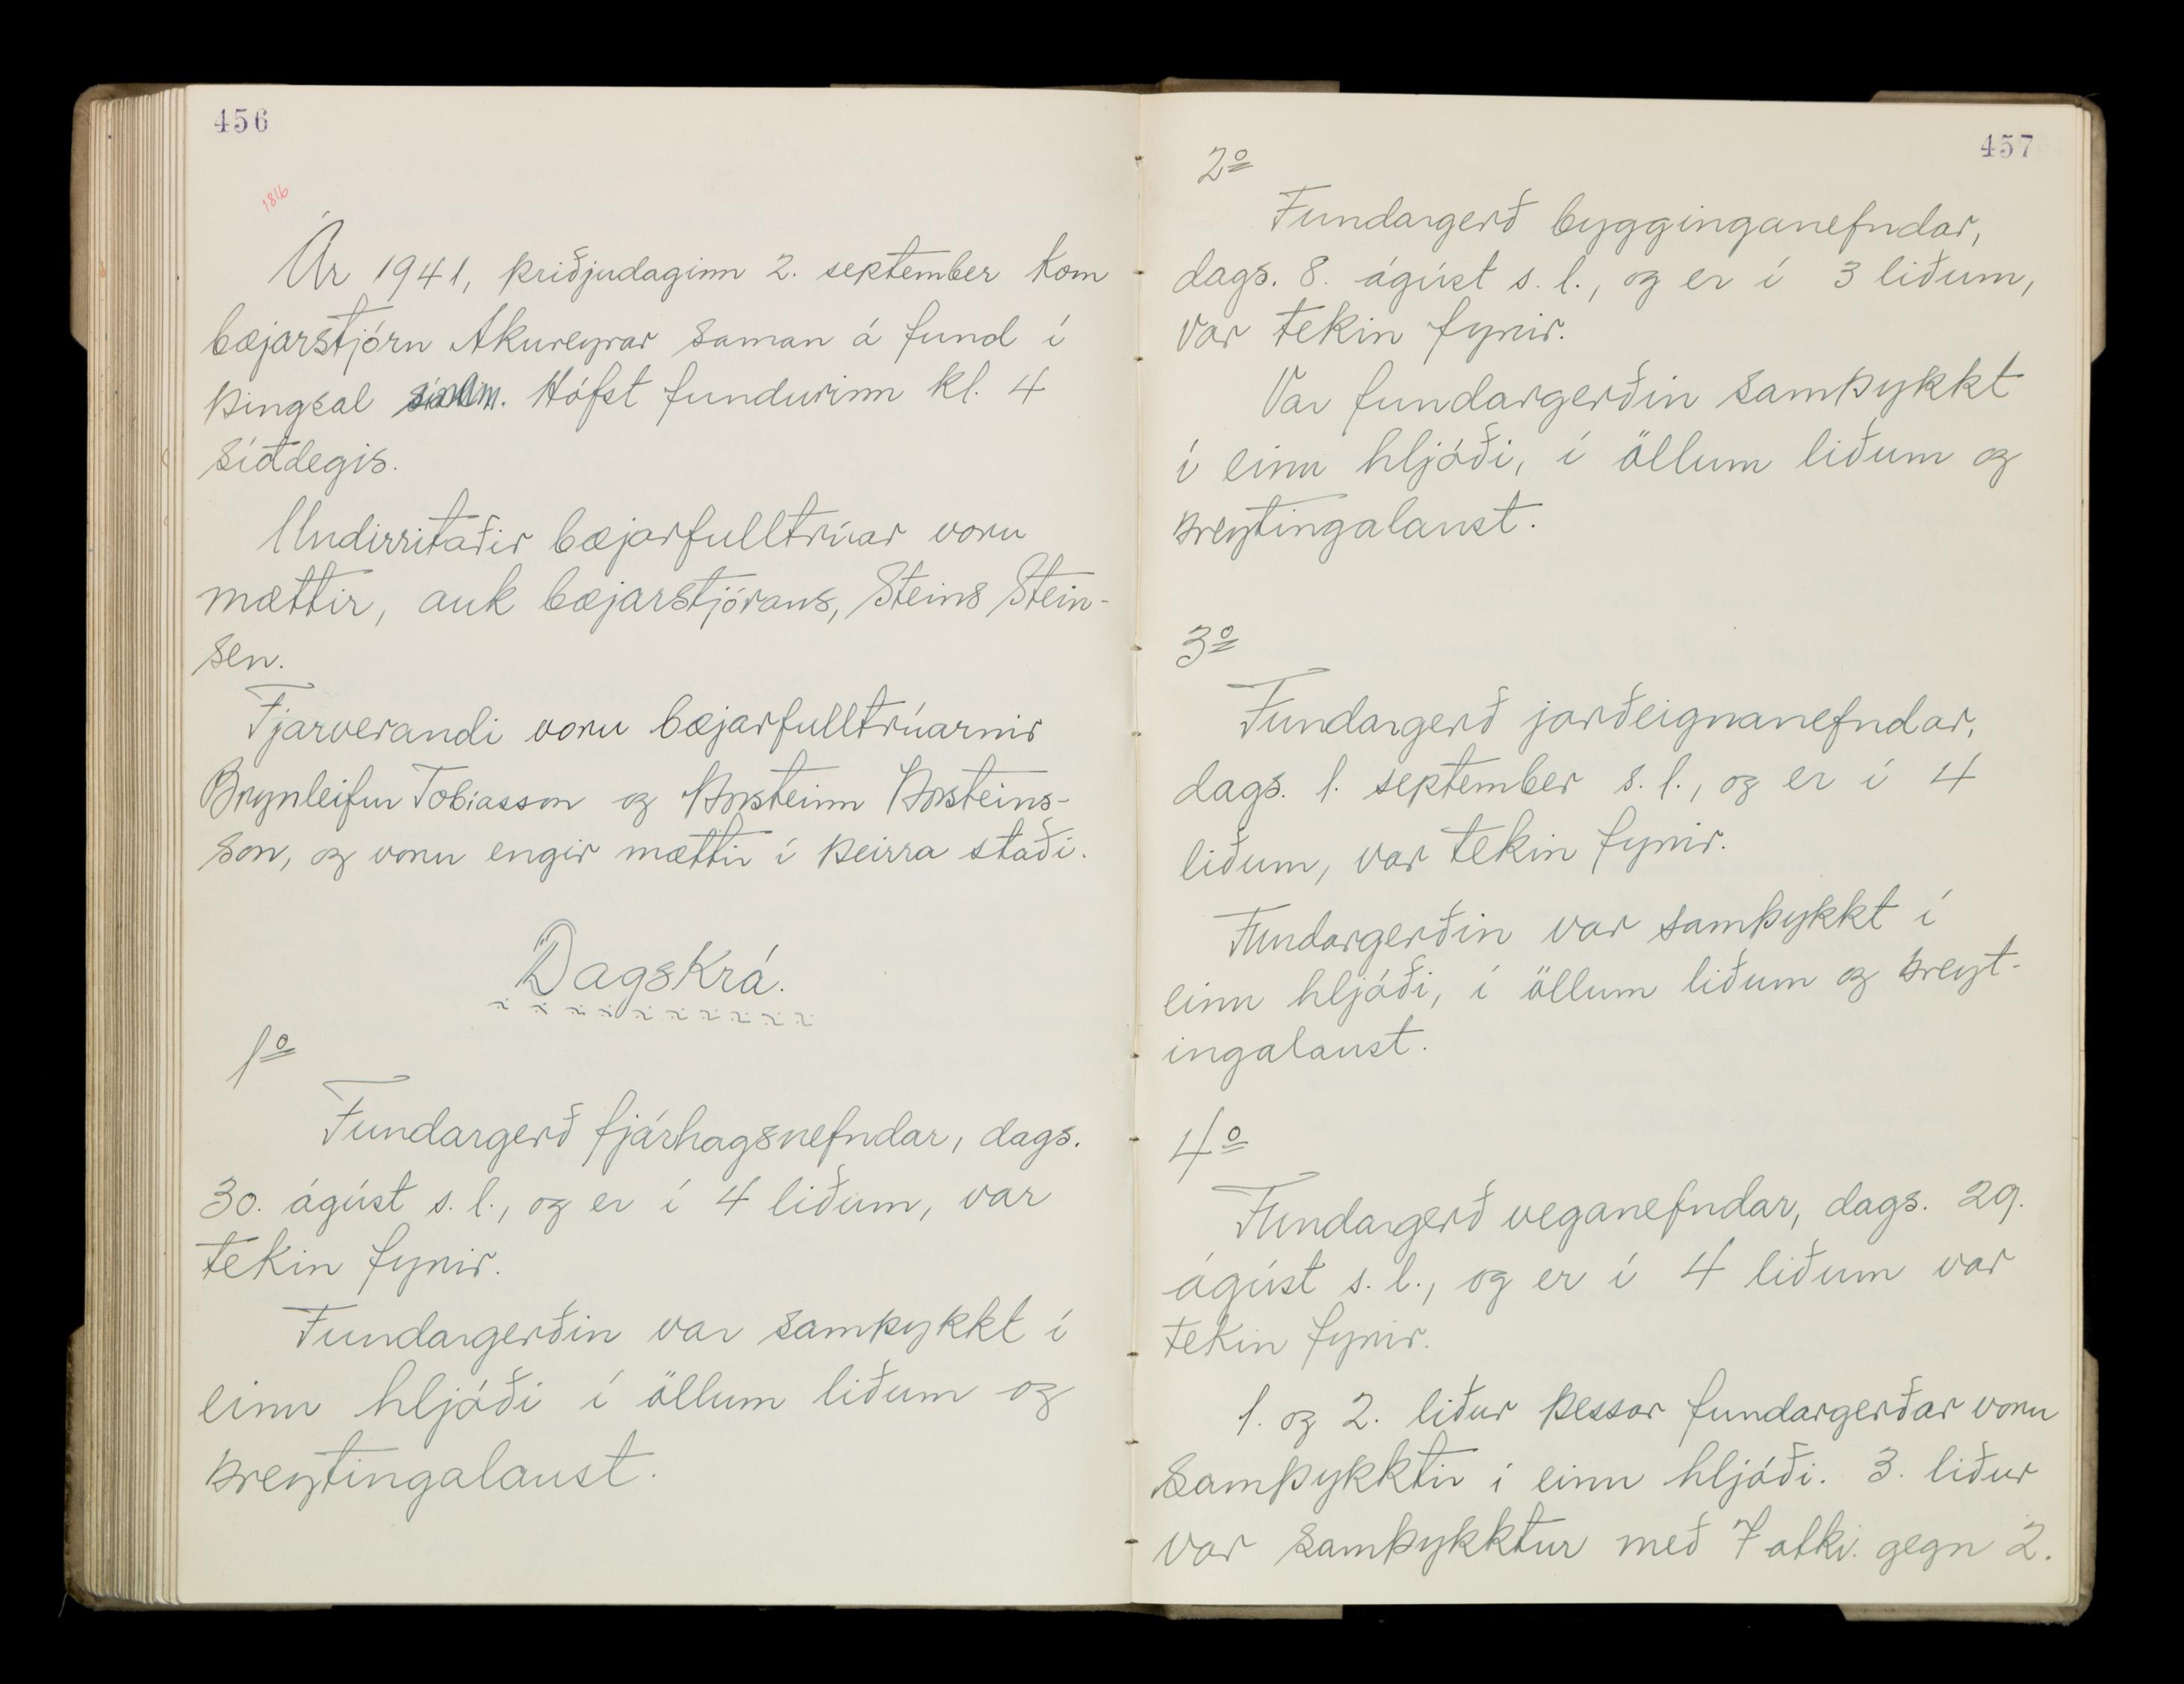 456
1816
Ár 1941, þriðjudaginn 2. september kom
bæjarstjórn Akureyrar saman á fund í
þingsal sínum. Hófst fundurinn kl. 4
síðdegis.
Undirritaðir bæjarfulltrúar voru
mættir, auk bæjarstjórans, Steins Stein-
sen.
Fjarverandi voru bæjarfulltrúarnir
Brynleifur Tobíasson og Þorsteinn Þorsteins-
son, og voru engir mættir í þeirra staði.
Dagskrá.
1º
Fundargerð fjárhagsnefndar, dags.
30. ágúst s.l., og er í 4 liðum, var
tekin fyrir.
Fundargerðin var samþykkt í
einu hljóði í öllum liðum og
breytingalaust.
457
2º
Fundargerð bygginganefndar,
dags. 8. ágúst s.l., og er í 3 liðum,
var tekin fyrir.
Var fundargerðin samþykkt
í einu hljóði, í öllum liðum og
breytingalaust.
3º
Fundargerð jarðeignanefndar,
dags. 1. september s.l., og er í 4
liðum, var tekin fyrir.
Fundargerðin var samþykkt í
einu hljóði, í öllum liðum og breyt-
ingalaust.
4º
Fundargerð veganefndar, dags. 29.
ágúst s.l., og er í 4 liðum var
tekin fyrir.
1. og 2. liður þessar fundargerðar voru
samþykktir í einu hljóði. 3. liður
var samþykktur með 7 atkv. gegn 2.